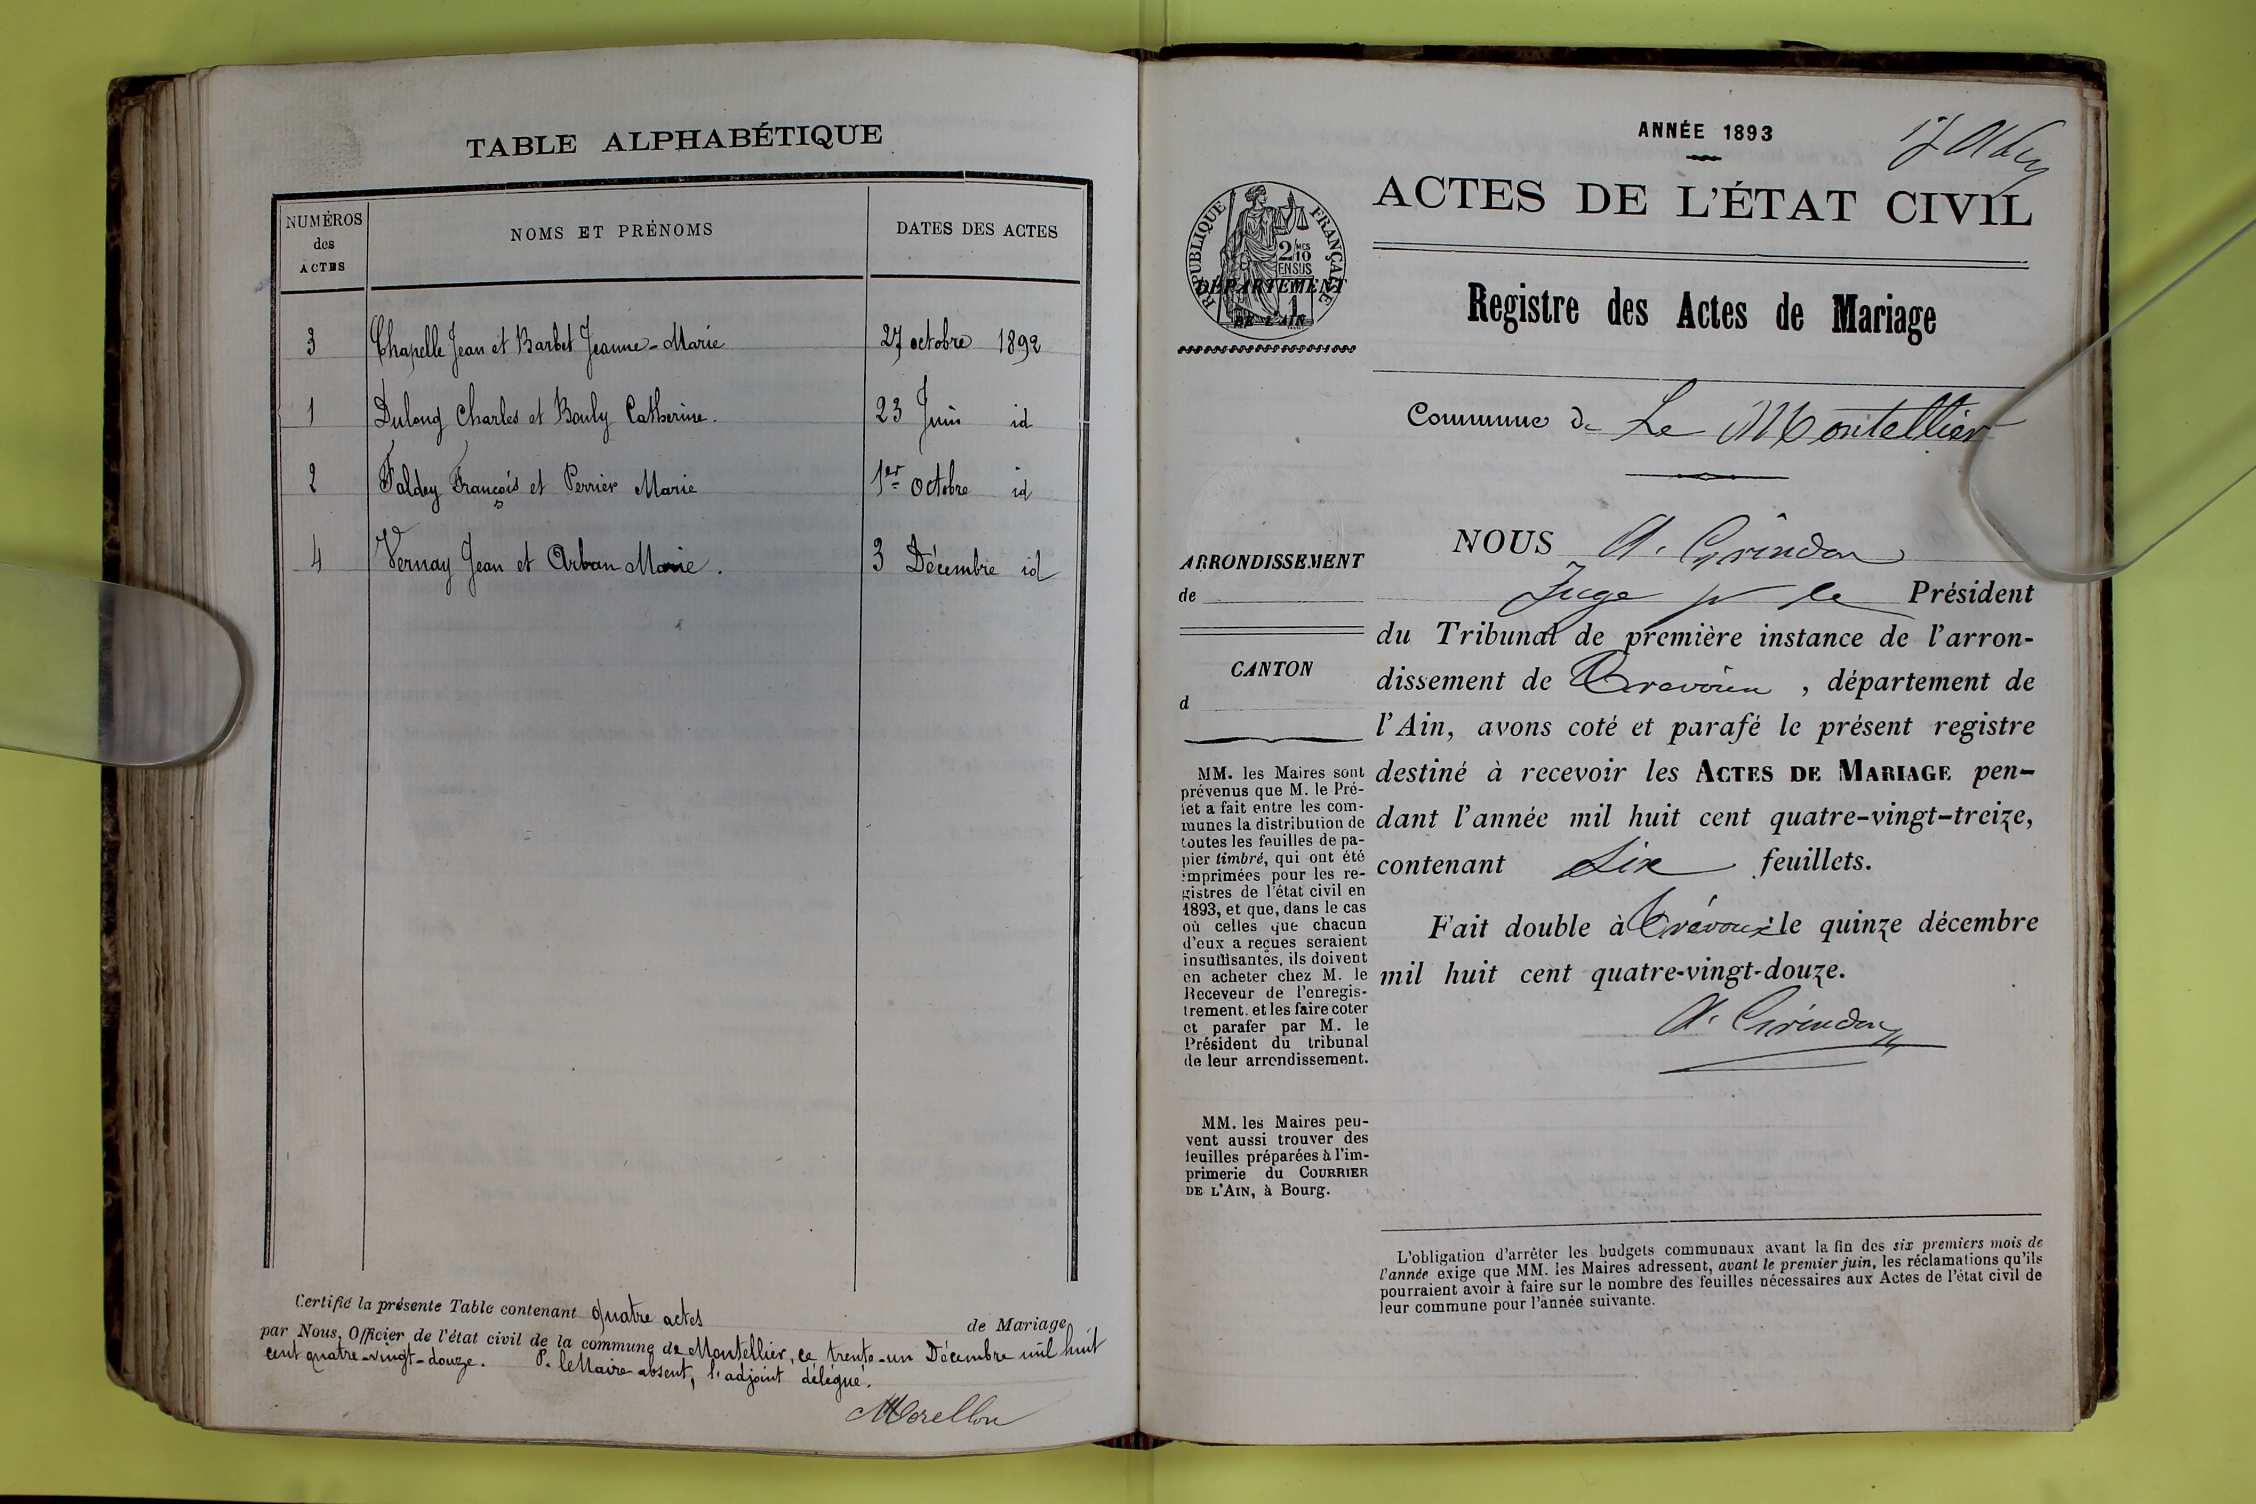 TABLE ALPHABÉTIQUE
NUMÉROS des ACTES
NOMS ET PRÉNOMS
DATES DES ACTES
3 Chapelle Jean et Barbet Jeanne-Marie 27 octobre 1892
1 Dulong Charles et Bouly Catherine. 23 Juin id
2 Faldey François et Perrier Marie 1er octobre id
4 Vernay Jean et Arban Marie. 3 Décembre id
Certifié la présente Table contenant quatre actes de Mariage
par Nous, Officier de l'état civil de la commune de Montellier, ce trente-un Décembre mil huit
cent quatre-vingt-douze. P. le Maire absent, l'adjoint délégué.
Morellon
ANNÉE 1893
ACTES DE L'ÉTAT CIVIL
RÉPUBLIQUE FRANÇAISE
2/10 MES
EN SUS
DÉPARTEMENT
DE L'AIN
Registre des Actes de Mariage
Commune de Le Montellier
ARRONDISSEMENT
de
CANTON
d
MM. les Maires sont
prévenus que M. le Pré-
fet a fait entre les com-
munes la distribution de
toutes les feuilles de pa-
pier timbré, qui ont été
imprimées pour les re-
gistres de l'état civil en
1893, et que, dans le cas
où celles que chacun
d'eux a reçues seraient
insuffisantes, ils doivent
en acheter chez M. le
Receveur de l'enregis-
trement. et les faire coter
et parafer par M. le
Président du tribunal
de leur arrondissement.
MM. les Maires peu-
vent aussi trouver des
feuilles préparées à l'im-
primerie du COURRIER
DE L'AIN, à Bourg.
NOUS A. Girindon
Juge pr le Président
du Tribunal de première instance de l'arron-
dissement de Trévoux, département de
l'Ain, avons coté et parafé le présent registre
destiné à recevoir les ACTES DE MARIAGE pen-
dant l'année mil huit cent quatre-vingt-treize,
contenant six feuillets.
Fait double à Trévoux le quinze décembre
mil huit cent quatre-vingt-douze.
A. Girindon
L'obligation d'arrêter les budgets communaux avant la fin des six premiers mois de
l'année exige que MM. les Maires adressent, avant le premier juin, les réclamations qu'ils
pourraient avoir à faire sur le nombre des feuilles nécessaires aux Actes de l'état civil de
leur commune pour l'année suivante.